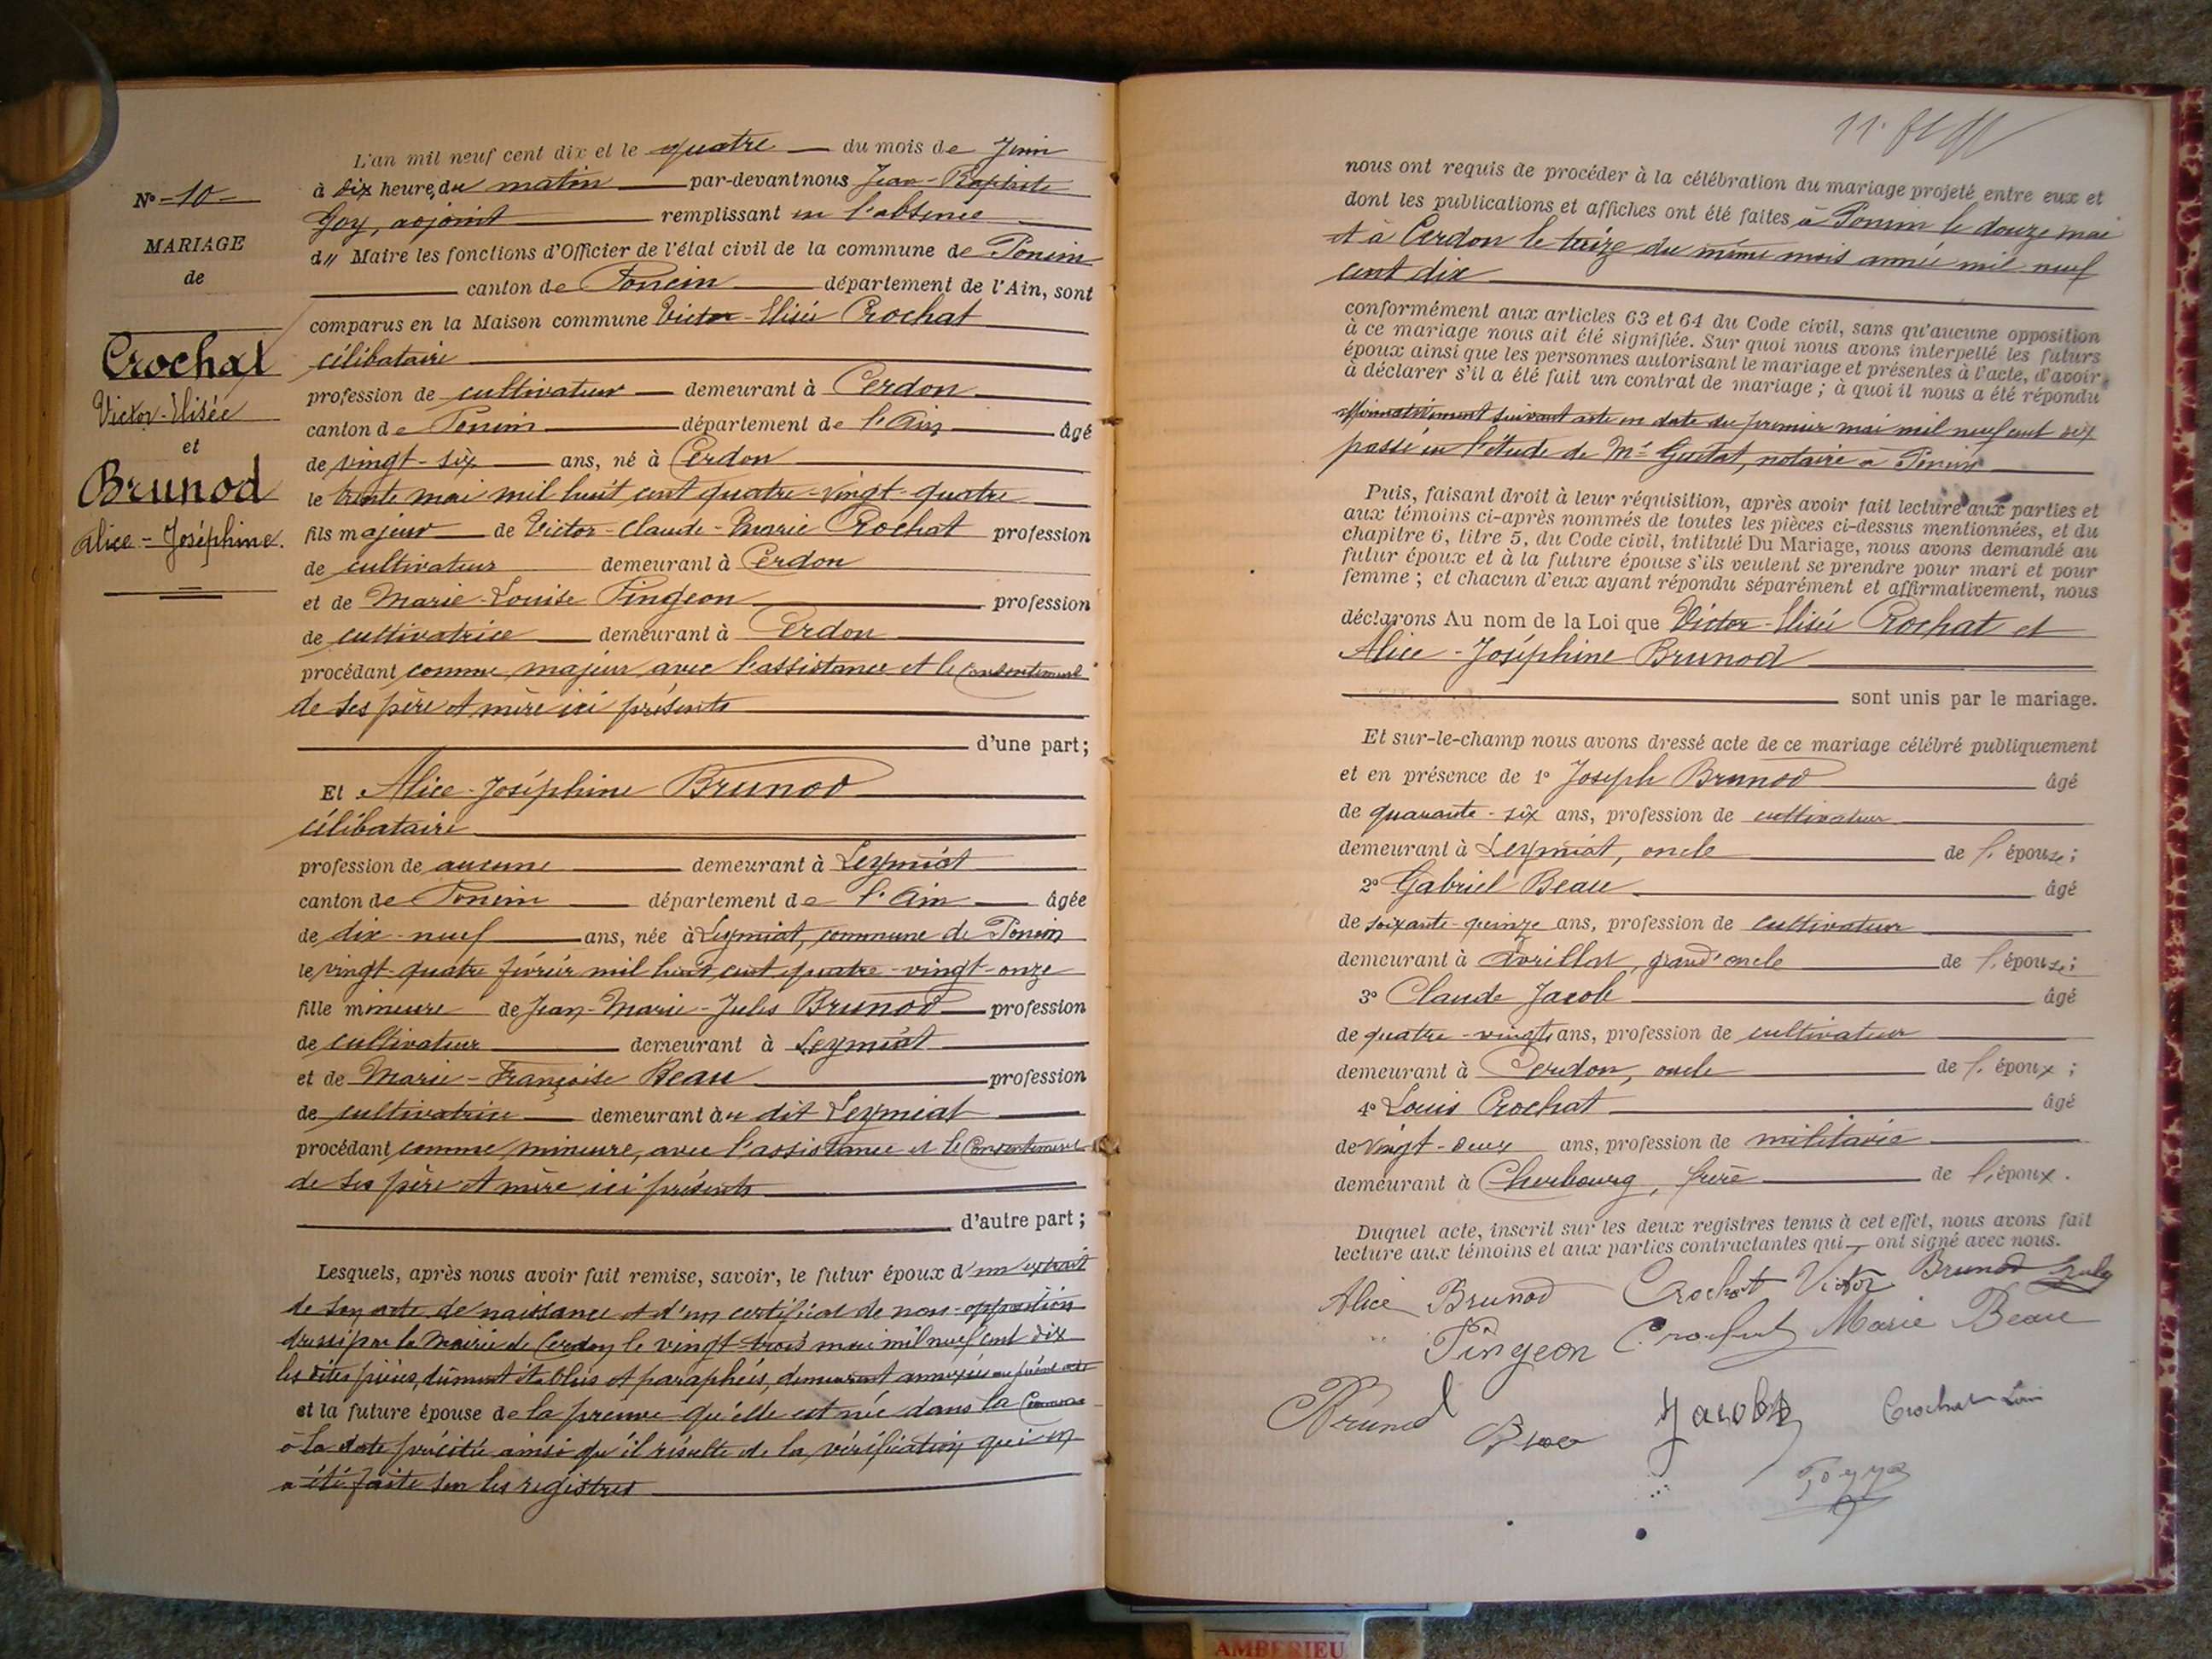 L'an mil neuf cent dix et le quatre du mois de Juin
à dix heure, du matin par-devant nous Jean-Baptiste
Goy, adjoint remplissant en l'absence
d" Maire les fonctions d'Officier de l'état civil de la commune de Poncin
canton de Poncin département de l'Ain, sont
comparus en la Maison commune Victor-Elisée Crochat
célibataire
profession de cultivateur demeurant à Cerdon
canton de Poncin département de l'Ain âgé
de vingt-six ans, né à Cerdon
le trente mai mil huit cent quatre-vingt-quatre
fils majeur de Victor-Claude-Marie Crochat profession
de cultivateur demeurant à Cerdon
et de Marie-Louise Pingeon profession
de cultivatrice demeurant à Cerdon
procédant comme majeur avec l'assistance et le consentement
de ses père et mère ici présents
d'une part;
Et Alice-Joséphine Brunod
célibataire
profession de aucune demeurant à Leymiat
canton de Poncin département de l'Ain âgée
de dix-neuf ans, née à Leymiat, commune de Poncin
le vingt-quatre février mil huit cent quatre-vingt-onze
fille mineure de Jean-Marie-Jules Brunod profession
de cultivateur demeurant à Leymiat
et de Marie-Françoise Beau profession
de cultivatrice demeurant au dit Leymiat
procédant comme mineure, avec l'assistance et le consentement
de ses père et mère ici présents
d'autre part;
Lesquels, après nous avoir fait remise, savoir, le futur époux d'un extrait
de son acte de naissance et d'un certificat de non-opposition
dressé par la Mairie de Cerdon le vingt-trois mai mil neuf cent dix
les dites pièces, dûment établies et paraphées, demeurent annexées au présent acte
et la future épouse de la preuve qu'elle est née dans la Commune
à la date précitée ainsi qu'il résulte de la vérification qui en
a été faite sur les registres
N° 10
MARIAGE
de
Crochat
Victor-Elisée
et
Brunod
Alice-Joséphine.
nous ont requis de procéder à la célébration du mariage projeté entre eux et
dont les publications et affiches ont été faites à Poncin le douze mai
et à Cerdon le treize du même mois année mil neuf
cent dix
conformément aux articles 63 et 64 du Code civil, sans qu'aucune opposition
à ce mariage nous ait été signifiée. Sur quoi nous avons interpellé les futurs
époux ainsi que les personnes autorisant le mariage et présentes à l'acte, d'avoir
à déclarer s'il a été fait un contrat de mariage; à quoi il nous a été répondu
affirmativement suivant acte en date du premier mai mil neuf cent dix
passé en l'étude de Me notaire à Poncin
Puis, faisant droit à leur réquisition, après avoir fait lecture aux parties et
aux témoins ci-après nommés de toutes les pièces ci-dessus mentionnées, et du
chapitre 6, titre 5, du Code civil, intitulé Du Mariage, nous avons demandé au
futur époux et à la future épouse s'ils veulent se prendre pour mari et pour
femme; et chacun d'eux ayant répondu séparément et affirmativement, nous
déclarons Au nom de la Loi que Victor-Elisée Crochat et
Alice-Joséphine Brunod
sont unis par le mariage.
Et sur-le-champ nous avons dressé acte de ce mariage célébré publiquement
et en présence de 1° Joseph Brunod âgé
de quarante-six ans, profession de cultivateur
demeurant à Leymiat, oncle de l'épouse;
2° Gabriel Beau âgé
de soixante-quinze ans, profession de cultivateur
demeurant à Avrillat, grand'oncle de l'épouse;
3° Claude Jacob âgé
de quatre-vingts ans, profession de cultivateur
demeurant à Cerdon, oncle de l'époux;
4° Louis Crochat âgé
de vingt-deux ans, profession de militaire
demeurant à Cherbourg, frère de l'époux.
Duquel acte, inscrit sur les deux registres tenus à cet effet, nous avons fait
lecture aux témoins et aux parties contractantes qui ont signé avec nous.
Alice Brunod Crochat Victor Brunod Jules
Pingeon Crochat Marie Beau
Brunod Beau Jacob Crochat Louis
AMBERIEU